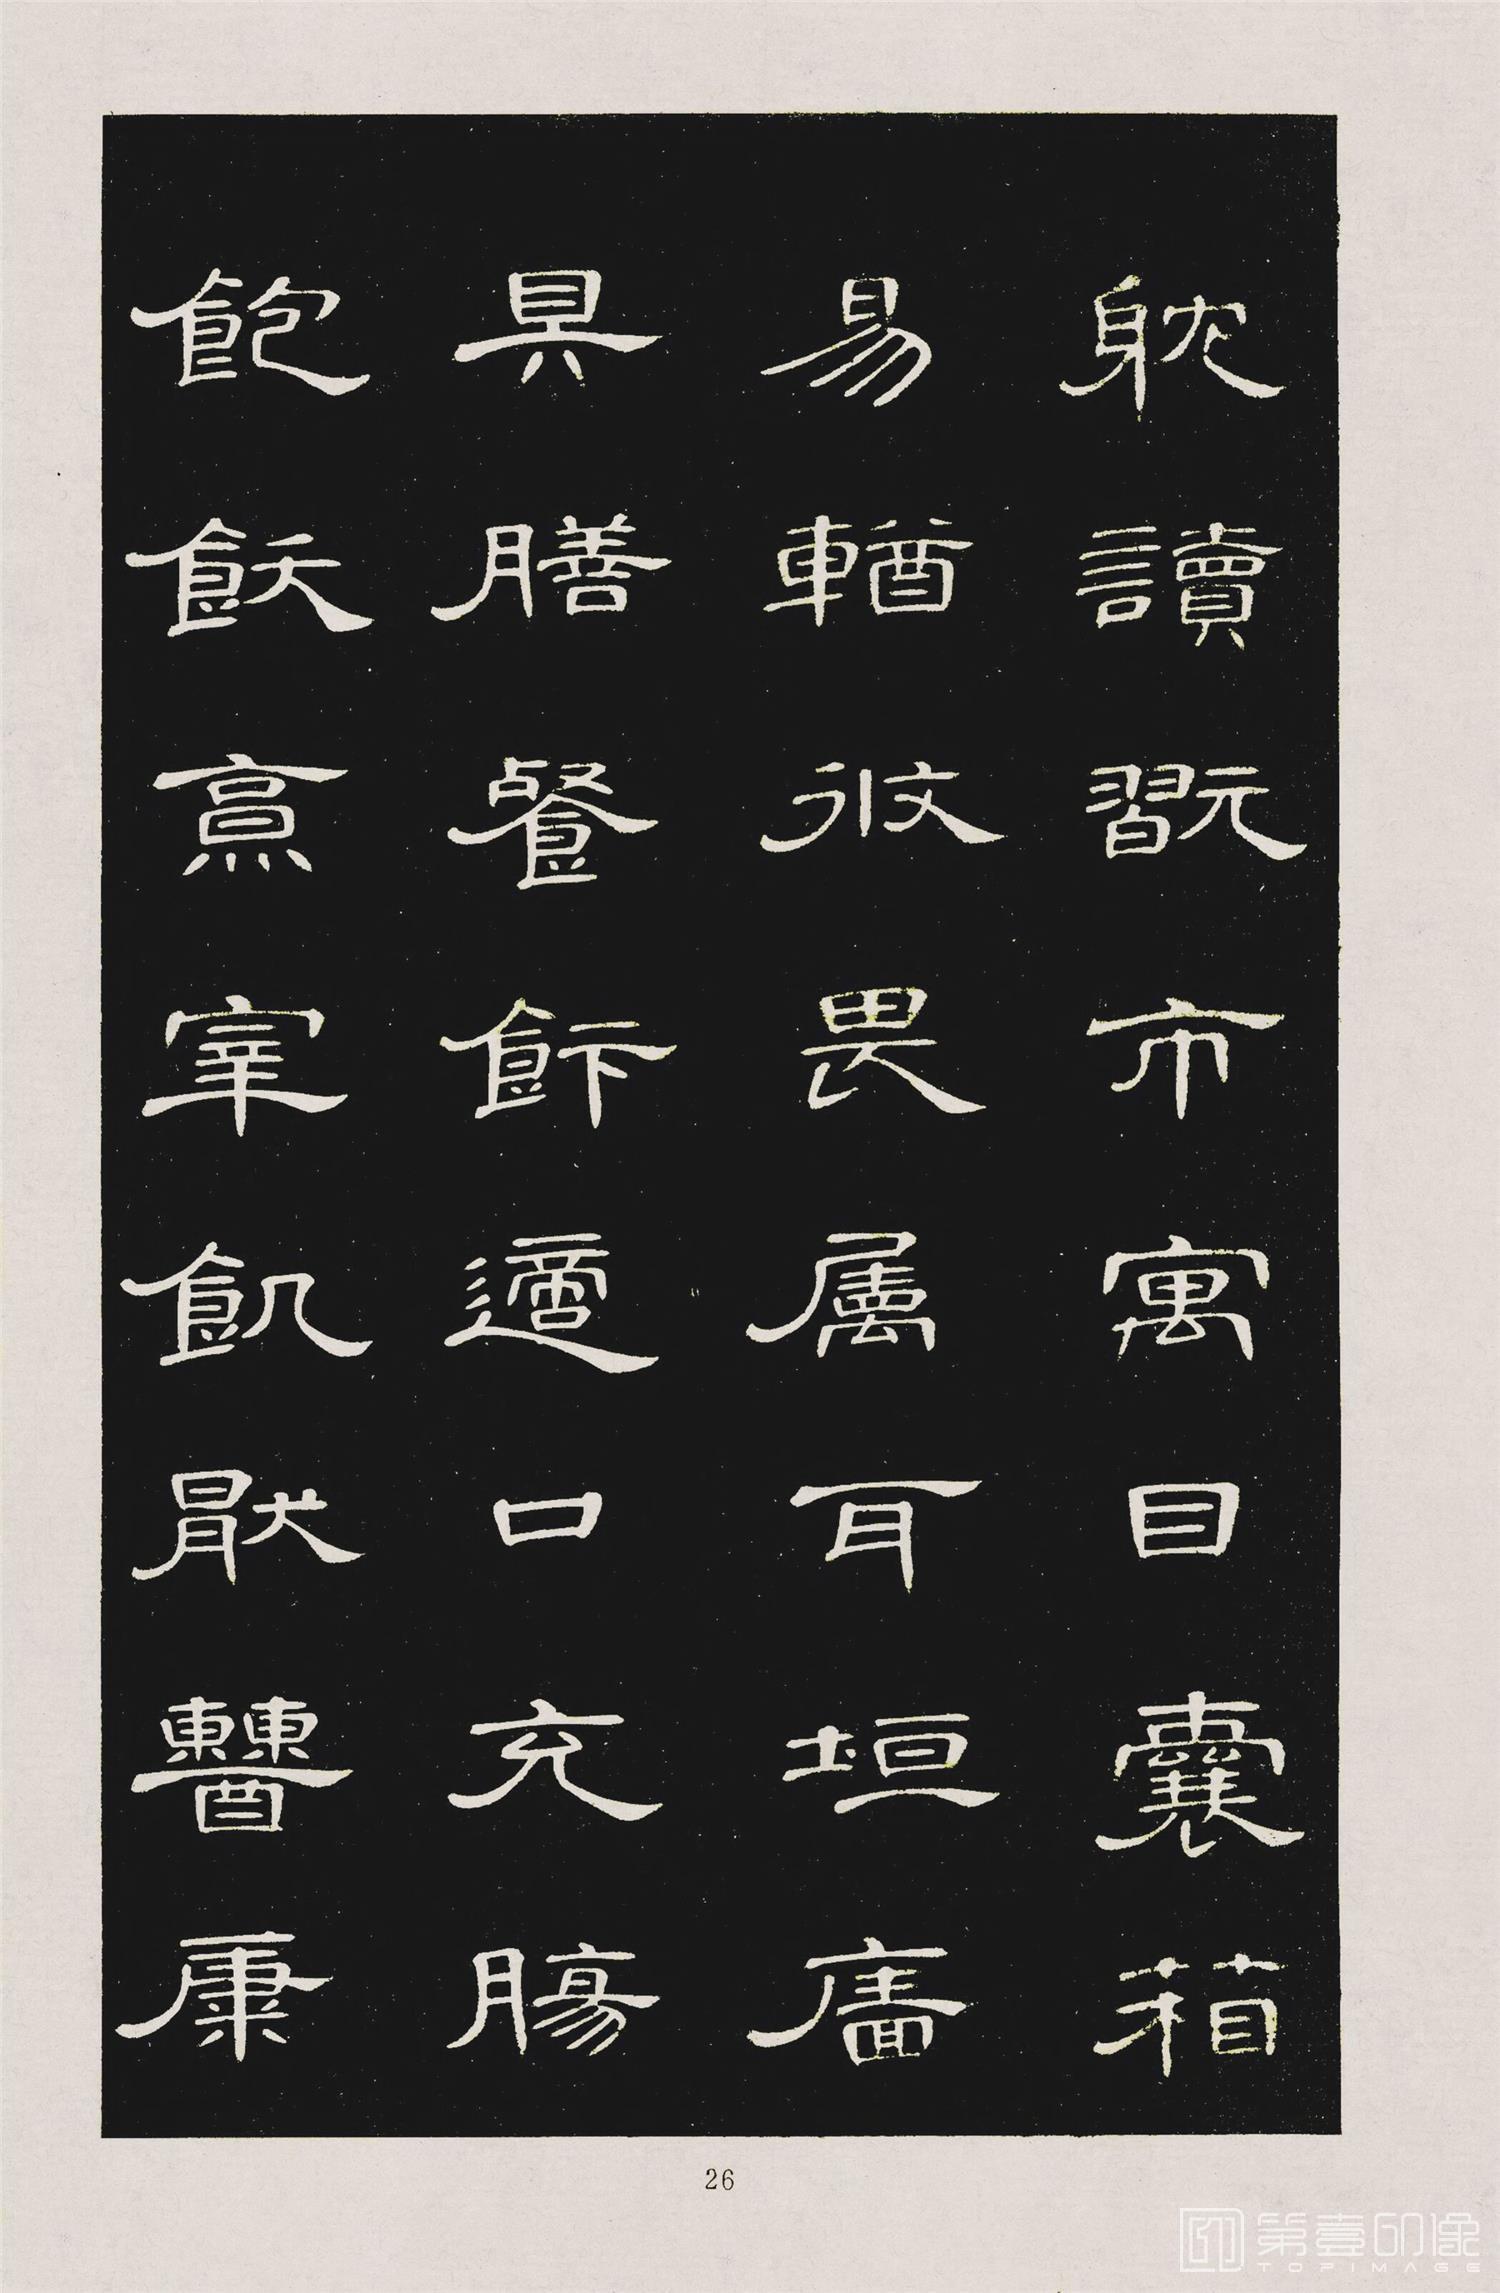 躭讀翫市寓目囊箱
易輶攸畏属耳垣廧
具膳飡飰適口充腸
飽飫烹宰飢猒糟糠
26
第壹印像
TOPIMAGE